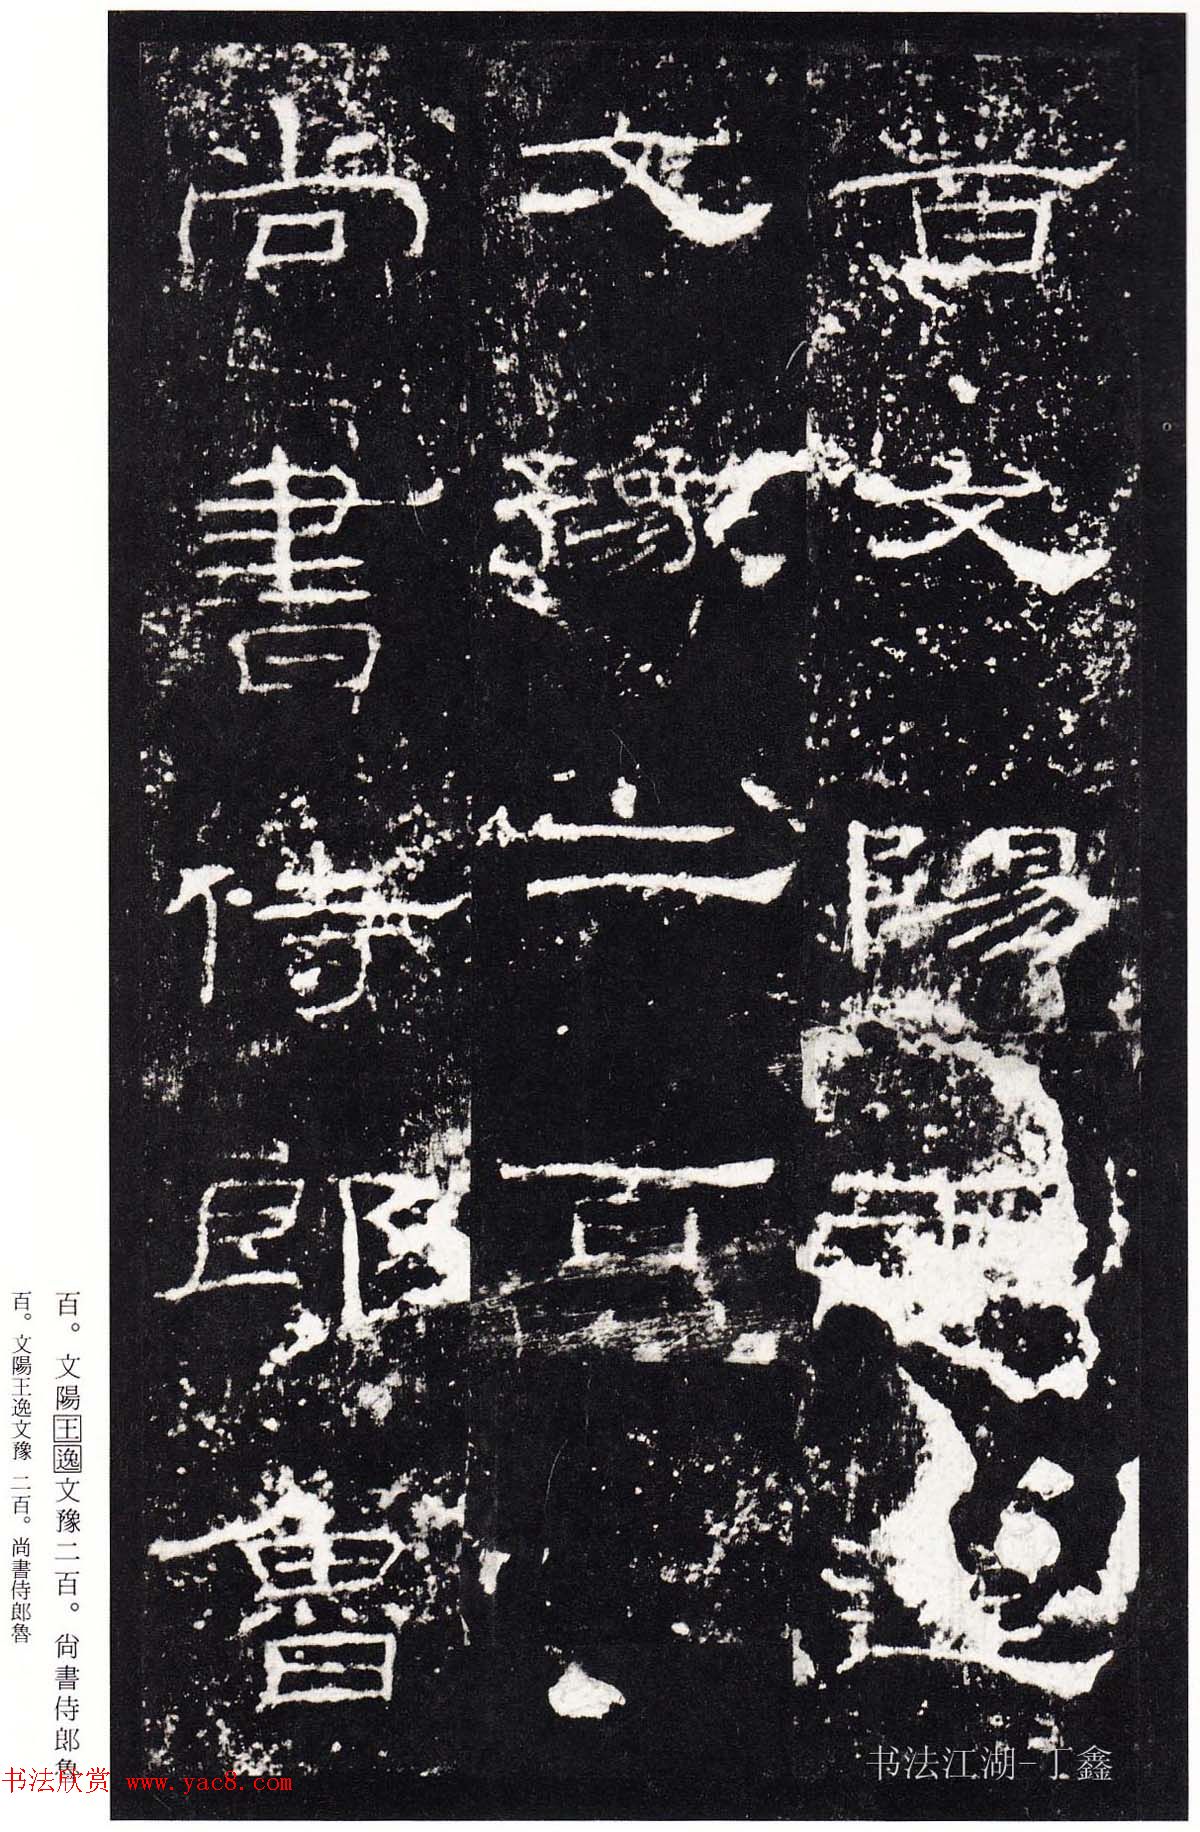 百文陽王逸
文豫二百
尚書侍郎魯
百。文陽王逸文豫二百。尚書侍郎魯
百。文陽王逸文豫 二百。尚書侍郎魯
书法欣赏 www.yac8.com
书法江湖-丁鑫